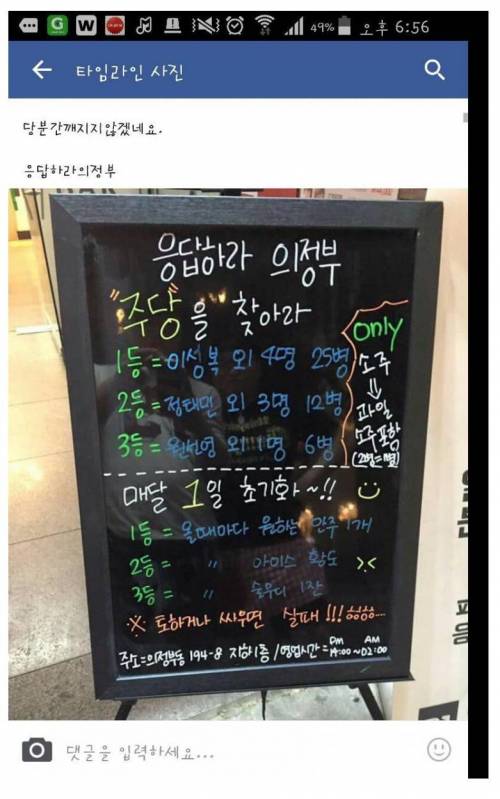 49% 오후 6:56
타임라인 사진
당분간깨지지않겠네요.
응답하라의정부
응답하라 의정부
"주당"을 찾아라
only
1등 = 이성복 외 4명 25병
소주
⇓
2등 = 정태민 외 3명 12병
과일
소주포함
3등 = 원선영 외 1명 6병
매달 1일 초기화~!!
1등 = 올때마다 원하는 안주 1개
2등 = 〃 아이스 황도
3등 = 〃 슬러디 1잔
※ 토하거나 싸우면 실패!!! ㅎㅎㅎ...
주소=의정부동 194-8 지하1층 / 영업시간 = PM 19:00 ~ AM 02:00
댓글을 입력하세요...